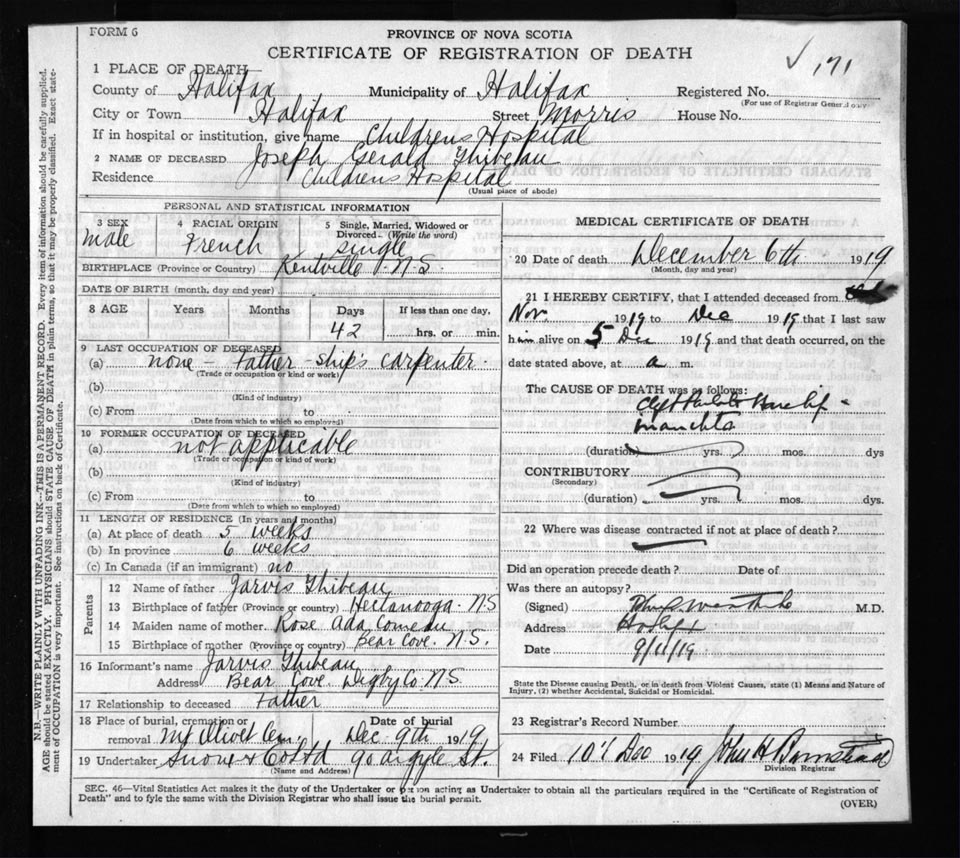 FORM 6
PROVINCE OF NOVA SCOTIA
CERTIFICATE OF REGISTRATION OF DEATH
171
1 PLACE OF DEATH
County of Halifax Municipality of Halifax Registered No.
(For use of Registrar General only)
City or Town Halifax Street Morris House No.
If in hospital or institution, give name Childrens Hospital
2 NAME OF DECEASED Joseph Gerald Thibeau
Residence Childrens Hospital
(Usual place of abode)
PERSONAL AND STATISTICAL INFORMATION
3 SEX 4 RACIAL ORIGIN 5 Single, Married, Widowed or Divorced (Write the word)
Male French single
BIRTHPLACE (Province or Country) Kentville N.S.
DATE OF BIRTH (month, day and year)
8 AGE Years Months Days If less than one day,
42 hrs. or min.
9 LAST OCCUPATION OF DECEASED
(a) none - Father - ship's carpenter
(Trade or occupation or kind or work)
(b)
(Kind of industry)
(c) From to
(Date from which to which so employed)
10 FORMER OCCUPATION OF DECEASED
(a) not applicable
(Trade or occupation or kind or work)
(b)
(Kind of industry)
(c) From to
(Date from which to which so employed)
11 LENGTH OF RESIDENCE (In years and months)
(a) At place of death 5 weeks
(b) In province 6 weeks
(c) In Canada (if an immigrant) no
Parents
12 Name of father Jarvis Thibeau
13 Birthplace of father (Province or country) Hectanooga - N.S
14 Maiden name of mother Rose Ada Comeau
15 Birthplace of mother (Province or country) Bear Cove. N.S.
16 Informant's name Jarvis Thibeau
Address Bear Cove Digby Co. N.S
17 Relationship to deceased Father
18 Place of burial, cremation or removal Mt Olivet Cem. Date of burial Dec 9th 1919
19 Undertaker Snow & Co Ltd 90 Argyle St.
(Name and Address)
MEDICAL CERTIFICATE OF DEATH
20 Date of death December 6th 1919
(Month, day and year)
21 I HEREBY CERTIFY, that I attended deceased from
Nov 1919 to Dec 1919 that I last saw
him alive on 5 Dec 1919 and that death occurred, on the
date stated above, at a m.
The CAUSE OF DEATH was as follows:
(duration) yrs. mos. dys
CONTRIBUTORY
(Secondary)
(duration) yrs. mos. dys.
22 Where was disease contracted if not at place of death?
Did an operation precede death? Date of
Was there an autopsy?
(Signed) M.D.
Address Halifax
Date 9/11/19
State the Disease causing Death, or in death from Violent Causes, state (1) Means and Nature of Injury, (2) whether Accidental, Suicidal or Homicidal.
23 Registrar's Record Number
24 Filed 10th Dec 1919 John H Barnstead
Division Registrar
SEC. 46—Vital Statistics Act makes it the duty of the Undertaker or person acting as Undertaker to obtain all the particulars required in the "Certificate of Registration of
Death" and to fyle the same with the Division Registrar who shall issue the burial permit.
(OVER)
N.B.—WRITE PLAINLY WITH UNFADING INK—THIS IS A PERMANENT RECORD. Every item of information should be carefully supplied.
AGE should be stated EXACTLY. PHYSICIANS should STATE CAUSE OF DEATH in plain terms, so that it may be properly classified. Exact statement of OCCUPATION is very important. See instructions on back of Certificate.